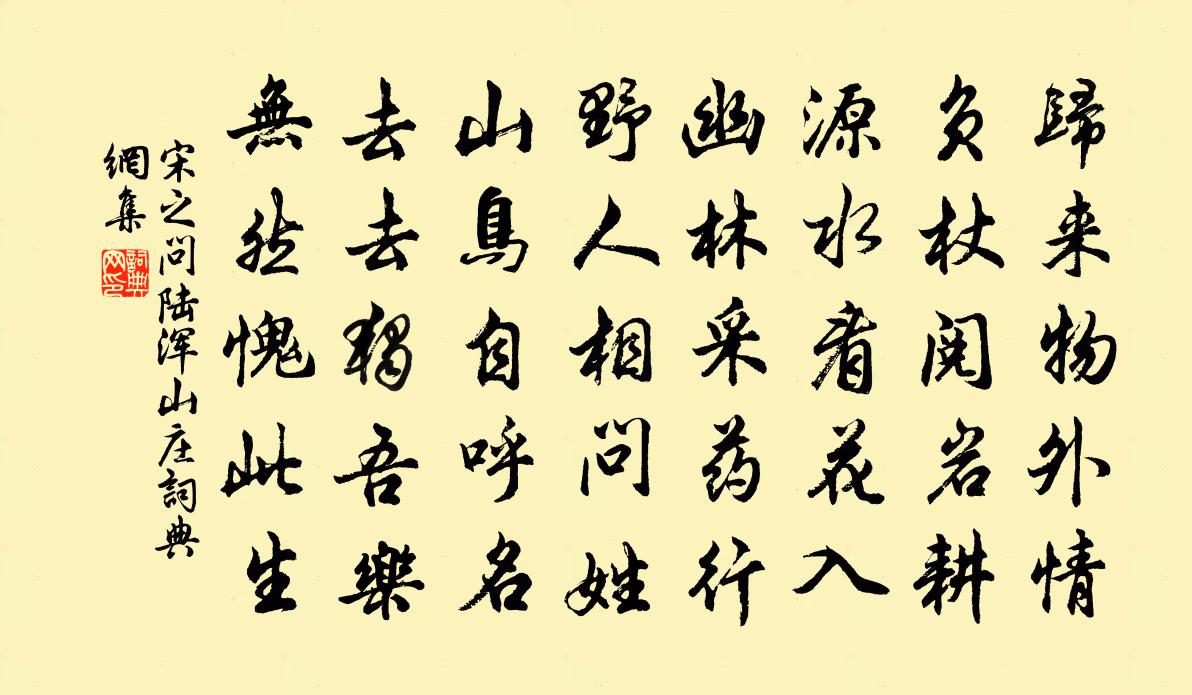 歸来物外情
负杖阅岩耕
源水看花入
幽林采药行
野人相问姓
山鳥自呼名
去去獨吾樂
無然愧此生
宋之问陆浑山庄詞典
網集
詞典网印